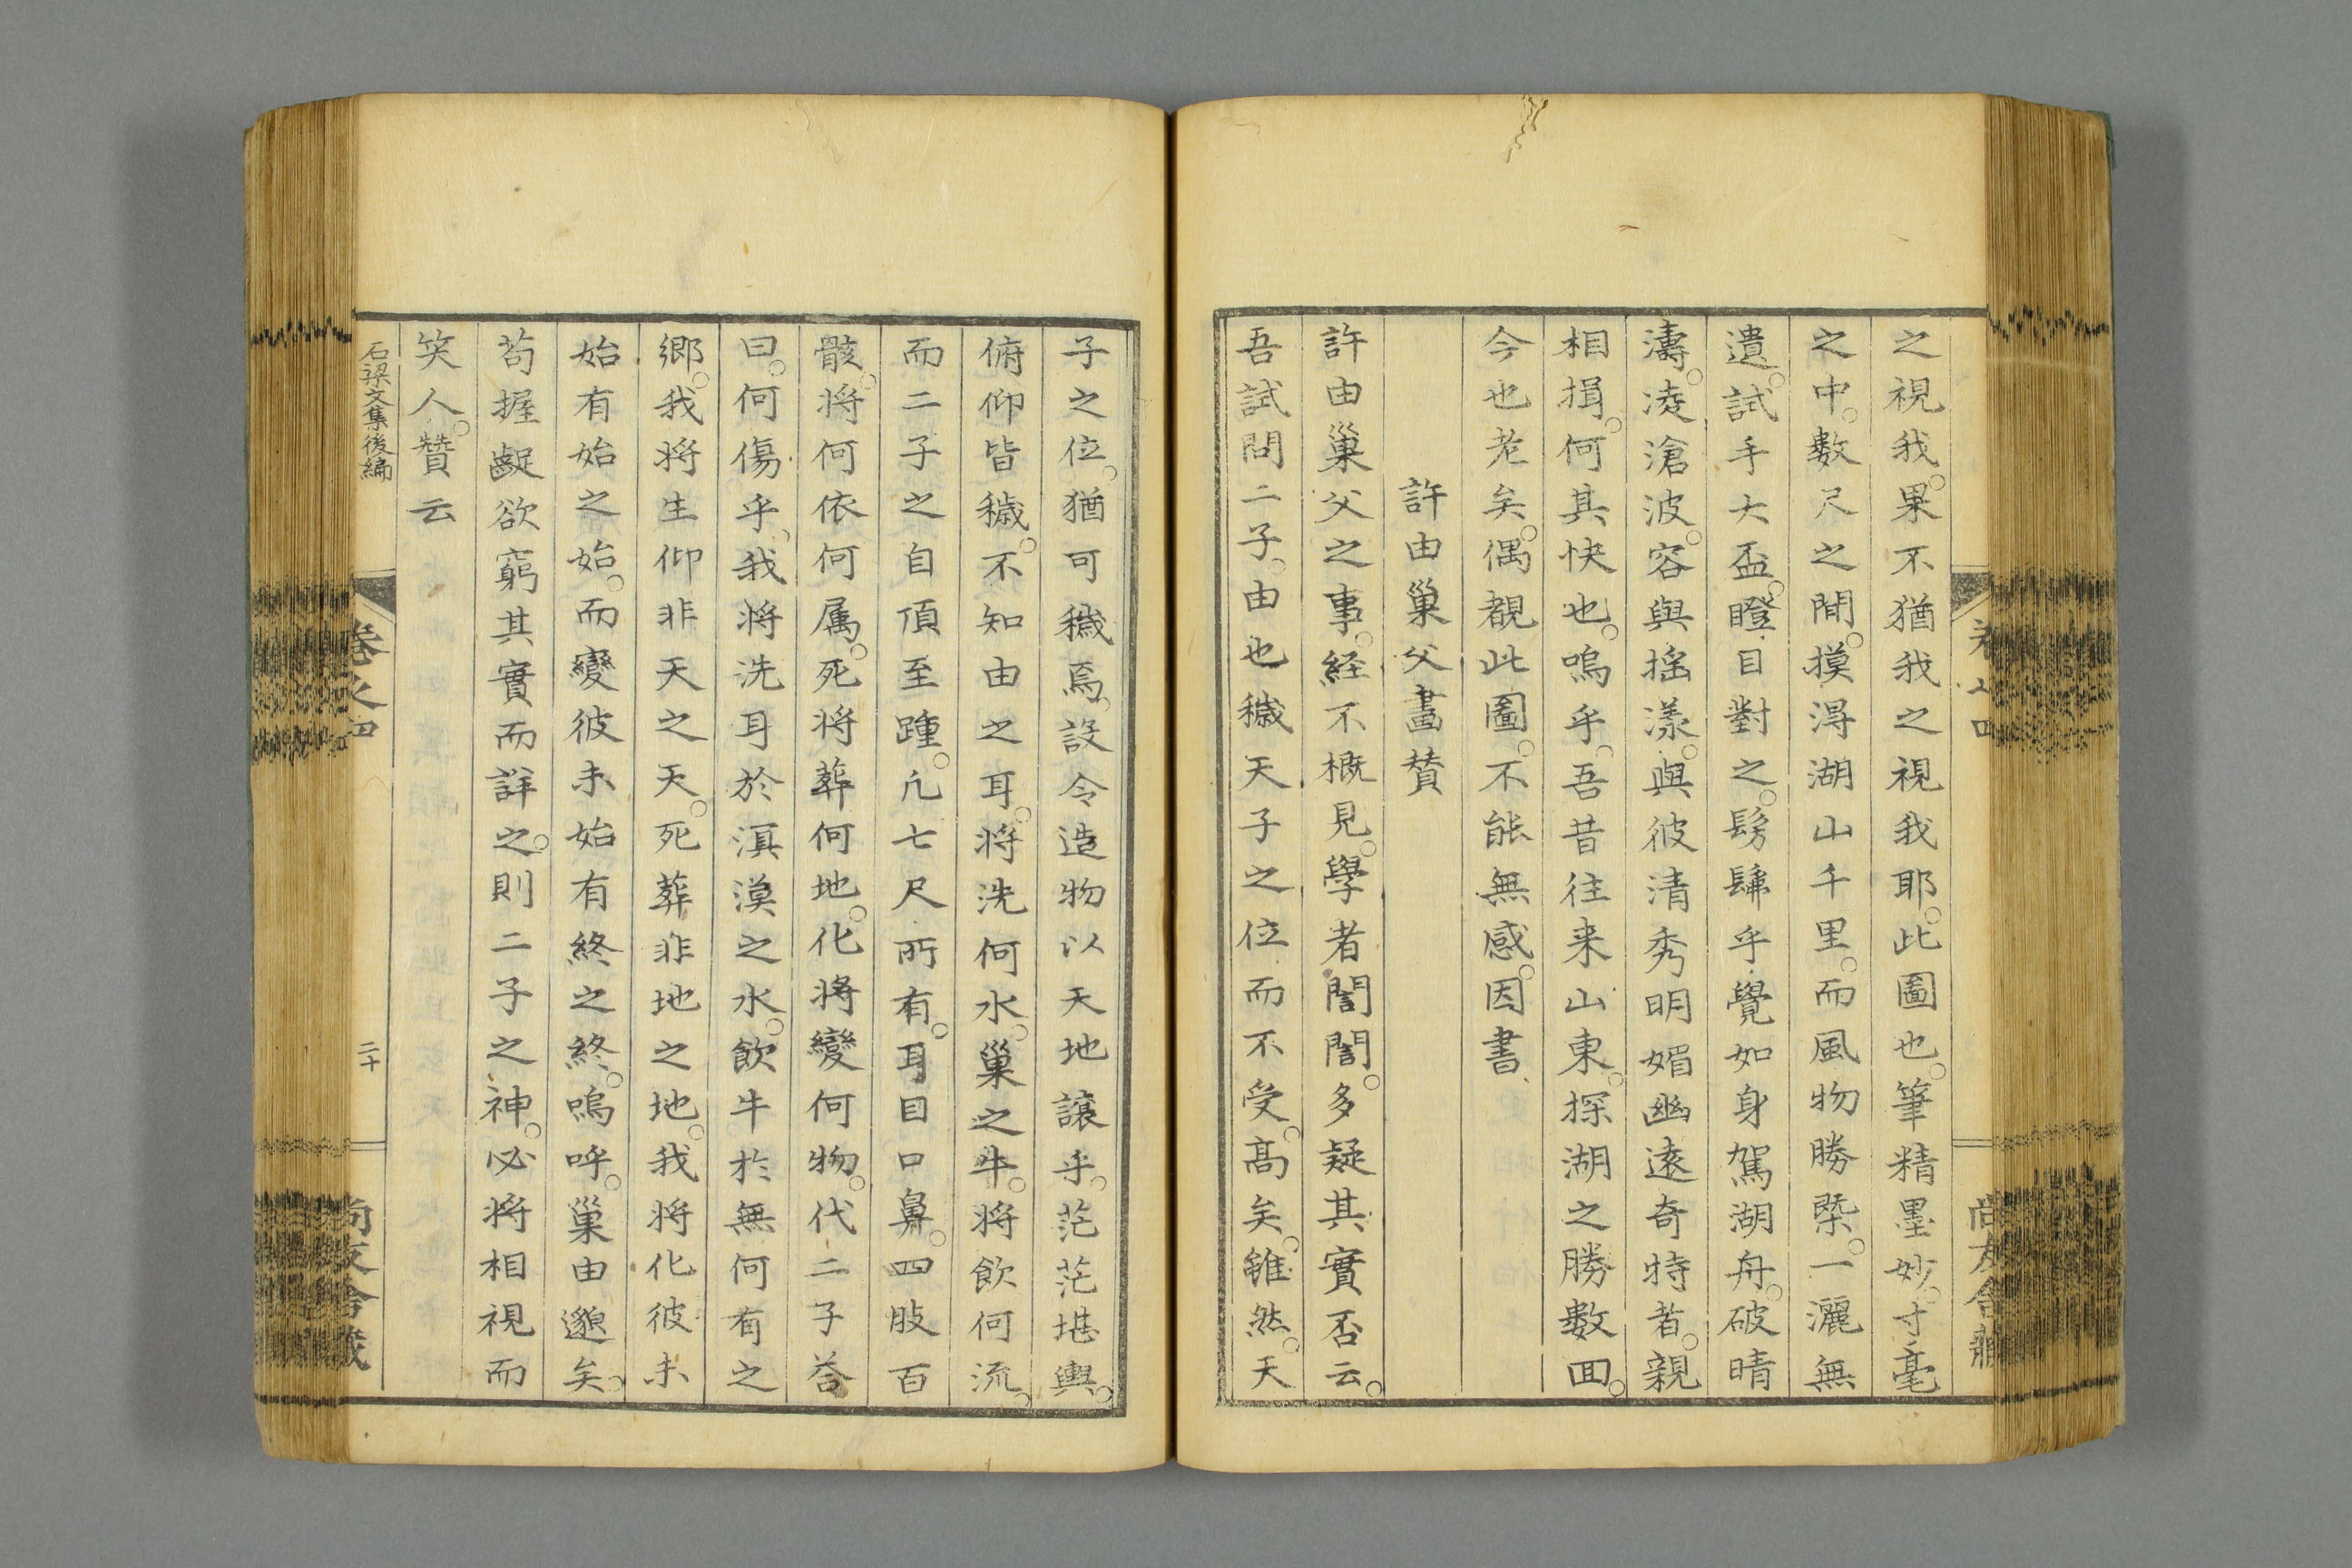 之視我。果不猶我之視我耶。此圖也。筆精墨妙。寸毫
之中。數尺之間。摸淂湖山千里。而風物勝槩。一灑無
遺。試手大盃。瞪目對之。髣髴乎覺如身駕湖舟。破晴
濤。淩滄波。容與揺漾。與彼清秀明媚幽遠奇特者。親
相揖。何其快也。嗚乎。吾昔往来山東。探湖之勝數回。
今也老矣。偶觀此圖。不能無感。因書
許由巢父畵賛
許由巢父之事。経不概見。學者誾誾。多疑其實否云。
吾試問二子。由也穢天子之位而不受。髙矣。雖然。天
子之位。猶可穢焉。設令造物以天地讓乎。茫茫堪輿。
俯仰皆穢。不知由之耳。将洗何水。巢之牛。将飲何流。
而二子之自頂至踵。凢七尺所有。耳目口鼻。四肢百
骸。将何依何属。死将葬何地。化将變何物。代二子荅
曰。何傷乎。我将洗耳於溟漠之水。飲牛於無何有之
郷。我将生仰非天之天。死葬非地之地。我将化彼未
始有始之始。而變彼未始有終之終。嗚呼。巢由邈矣。
苟握齪欲窮其實而詳之。則二子之神。必将相視而
笑人。贊云
石梁文集後編
卷之四
二十
尚友舎藏